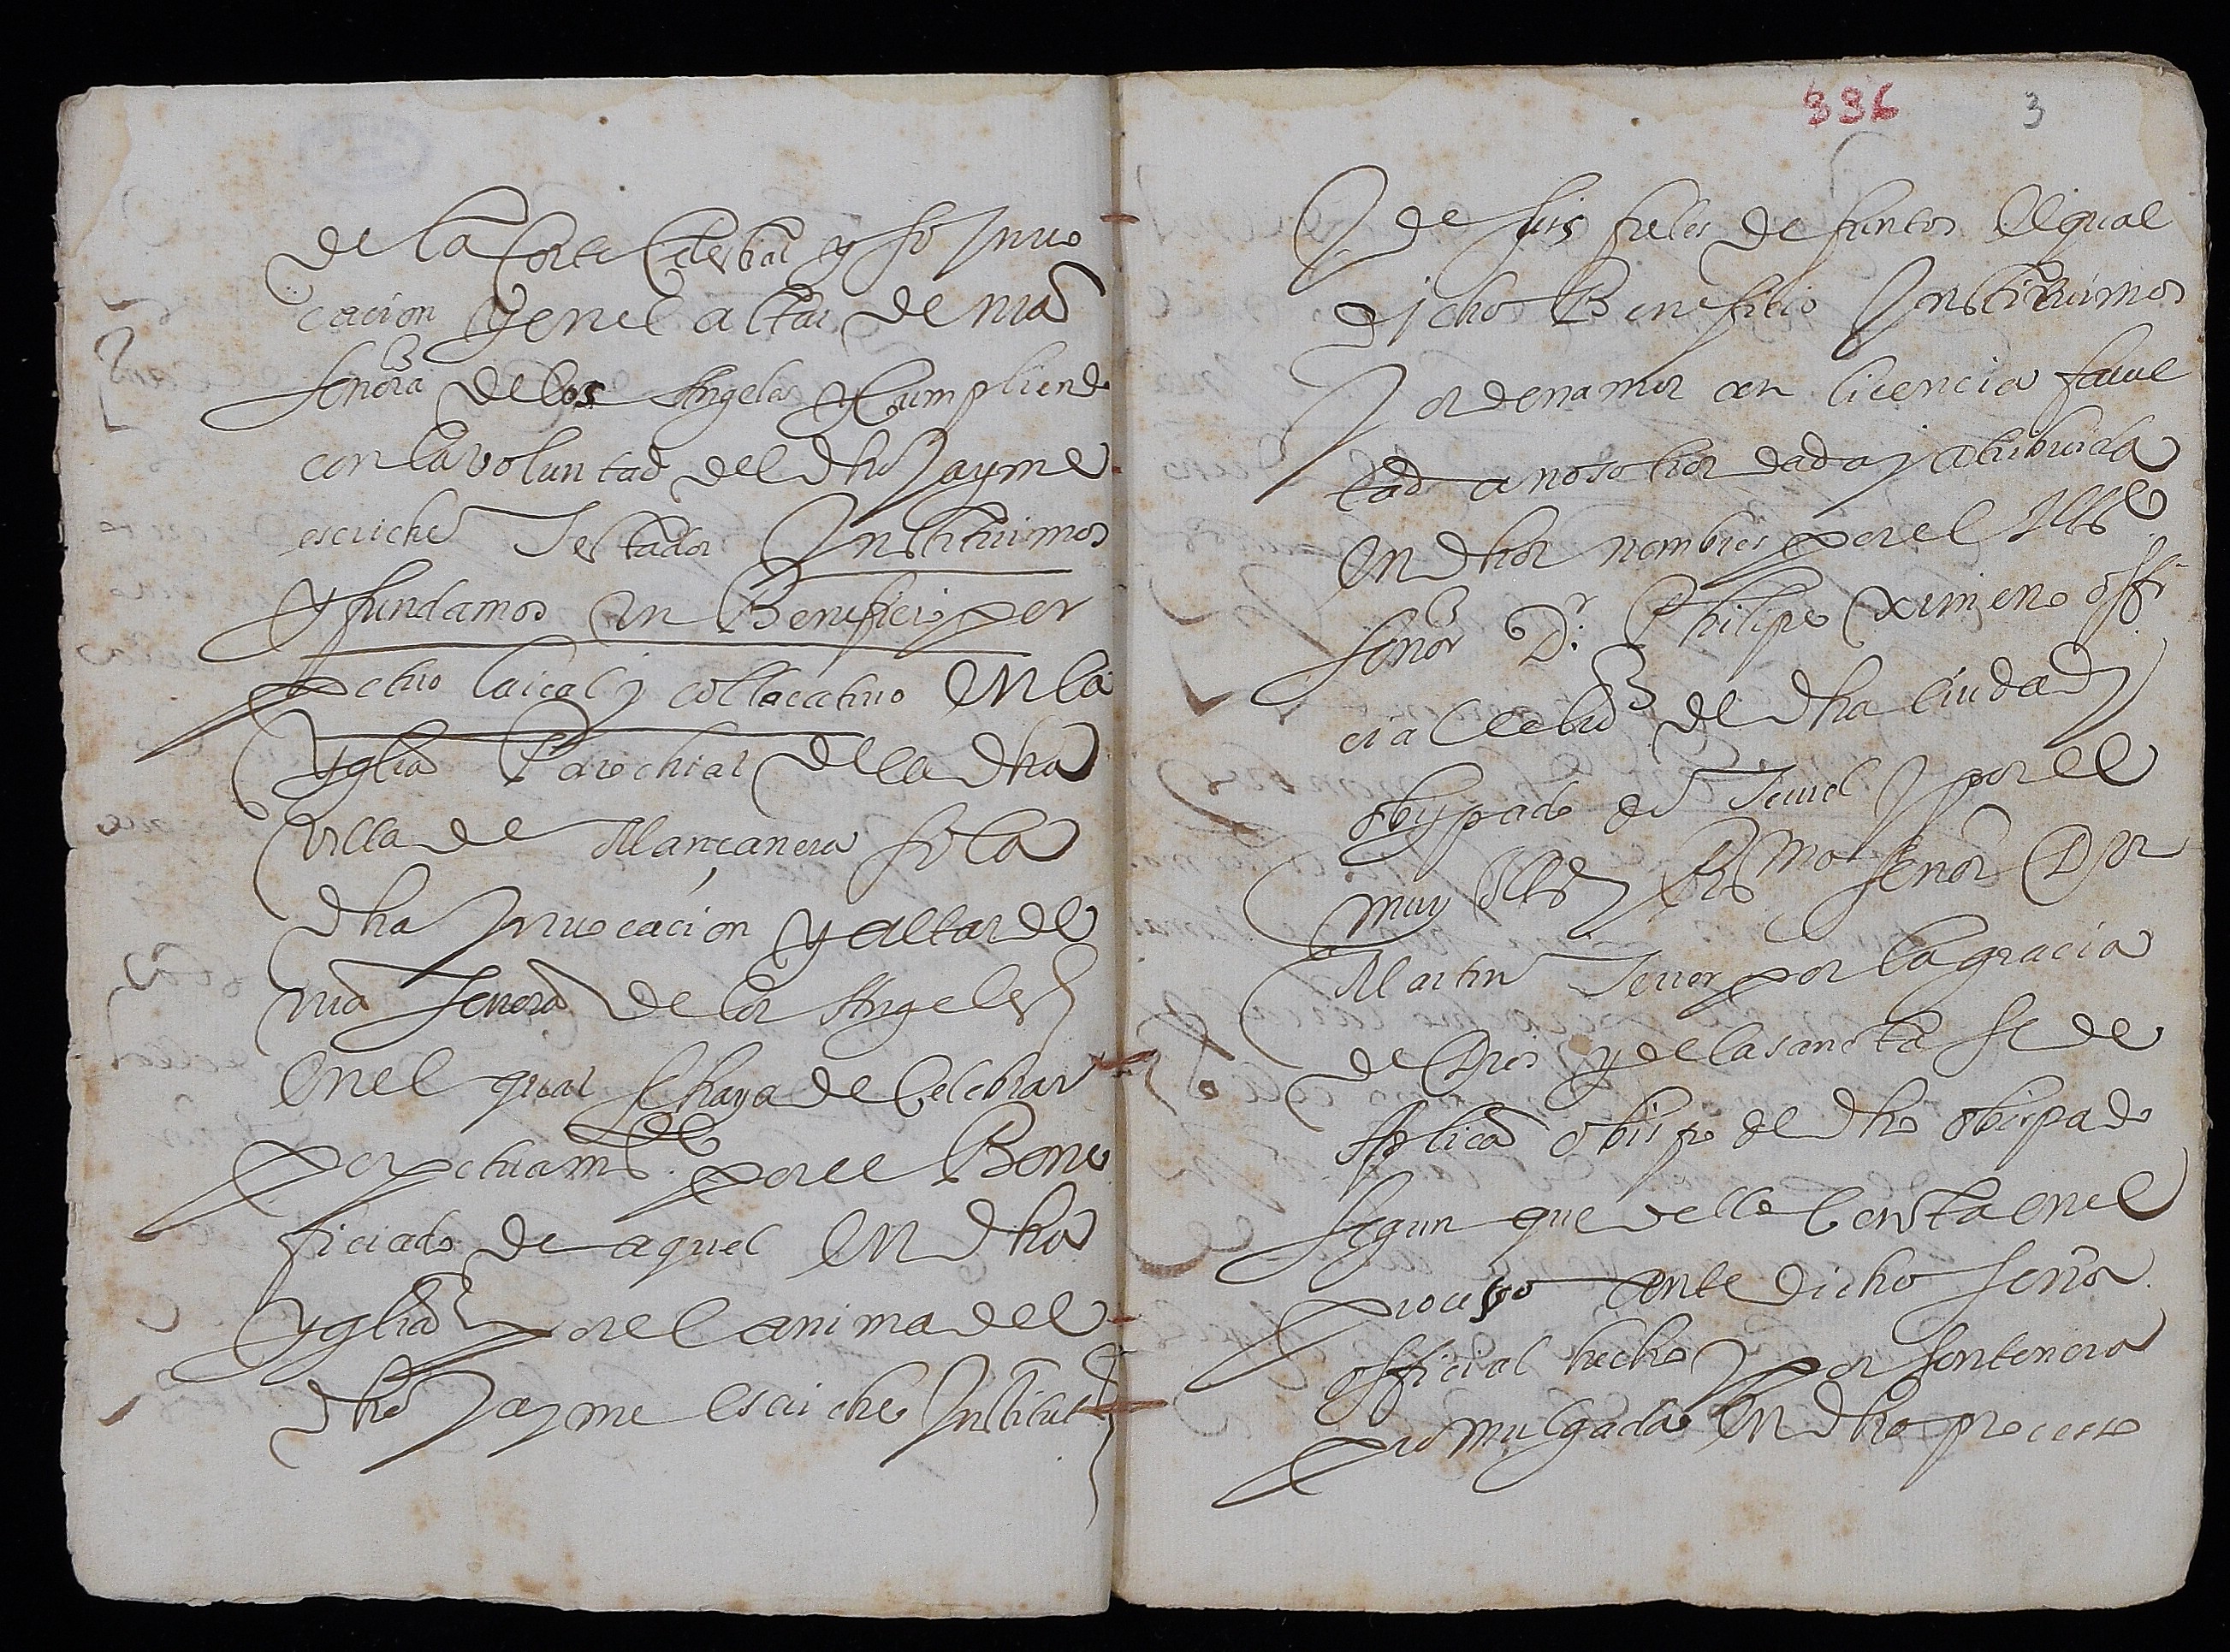 de la Corte Celestial y so Jnuo
cacion y en el altar de nra
señora de los Angeles y Cumpliendo
con la voluntad del dho Jayme
escriche Testador Jnstituimos
y fundamos un Beneficio per
petuo laical y collacatiuo en la
yglia Parochial de la dha
villa de Mançanera so la
dha Jnuocacion y altar de
nra senora de los Angeles
en el qual se haya de Celebrar
perpetuamte. por el Bene
ficiado de aquel en dha
yglia por el anima del
dho Jayme escriche Jnstitut
336 3
y de sus fieles defuntos el qual
dicho Beneficio Jnstituimos
y ordenamos con licencia facul
tad a nosotros dada y atribuida
en dhos nombres por el Illse
señor Dr. Philipe ximeno offi
cial ecclco de dha ciudad y
obispado de Teruel y por el
muy Ille y Rmo señor Don
Martin Terrer por la gracia
de Dios y de la sancta se de
Aplica obispo del dho obispado
segun que dello Consta en el
processo ante dicho señor
official hecho y por sentencia
promulgada en dho processo